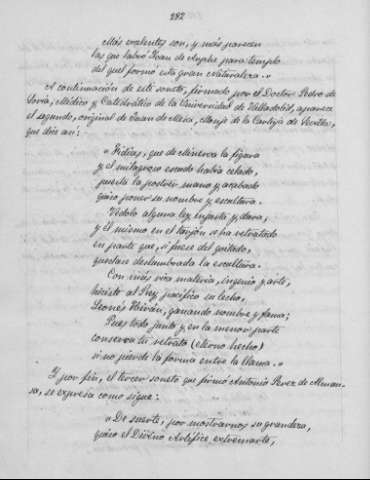 282
Más excelentes son, y más parecen
las que labró Juan de Arphe para templo
del que formó esta gran naturaleza.»
A continuación de este soneto, firmado por el Doctor Pedro de
Soria, Médico y Catedrático de la Universidad de Valladolid, aparece
el segundo, original de Juan de Mesa, Monje de la Cartuja de Sevilla,
que dice así:
«Fidias, que de Minerva la figura
y el milagroso escudo había
puesta la postrer mano y acabado
quiso poner su nombre y escultura.
Vedolo alguna ley injusta y dura,
y él mismo en el se ha retratado
en parte que, si fuese del quitado,
quedara deslumbrada la escultura.
Con más rica materia, ingenio y arte,
hiciste al Rey pacífico su lecho,
Leonés ganando nombre y fama;
Pues todo junto y en la menor parte
conserva tu retrato (eterno hecho)
si no pierde la forma entre la llama.»
Y por fin, el tercer soneto que firmó Antonio Perez de Alman-
sa, se expresa como sigue:
«De suerte, por mostrarnos su grandeza,
quiso el Divino Artífice extremarte,